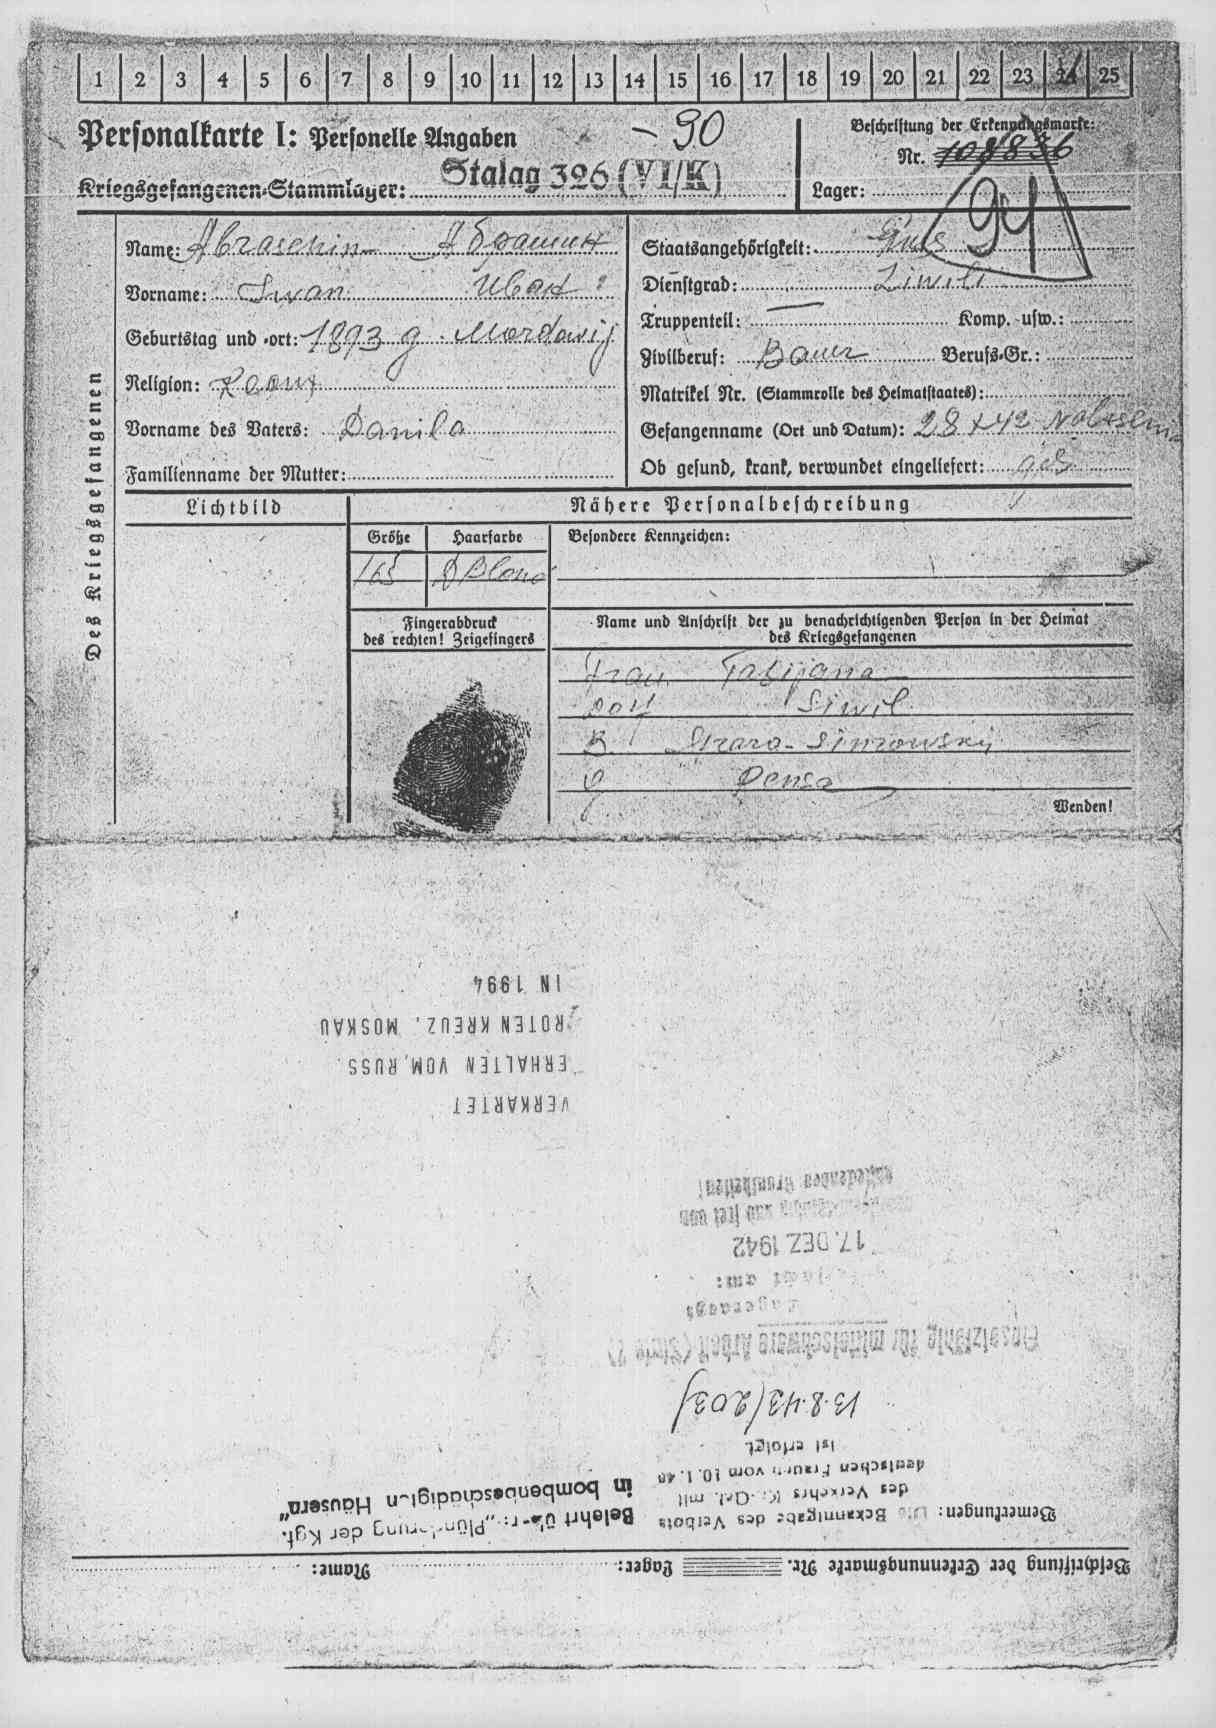 1 2 3 4 5 6 7 8 9 10 11 12 13 14 15 16 17 18 19 20 21 22 23 24 25
Personalkarte I: Personelle Angaben
- 90
Kriegsgefangenen-Stammlager: Stalag 326 (VI/K)
Beschriftung der Erkennungsmarke:
Nr. 108836
Lager:
94
Des Kriegsgefangenen
Name: Abraschin Абрашин
Vorname: Iwan Иван
Geburtstag und -ort: 1893 g. Mordowij
Religion:
Vorname des Vaters: Danila
Familienname der Mutter:
Staatsangehörigkeit: Russ
Dienstgrad: Ziwili
Truppenteil: — Komp. usw.:
Zivilberuf: Bauer Berufs-Gr.:
Matrikel Nr. (Stammrolle des Heimatstaates):
Gefangenname (Ort und Datum): 28 x 42
Ob gesund, krank, verwundet eingeliefert: ges
Lichtbild
Nähere Personalbeschreibung
Größe Haarfarbe Besondere Kennzeichen:
165 D Blond
Fingerabdruck
des rechten! Zeigefingers
Name und Anschrift der zu benachrichtigenden Person in der Heimat
des Kriegsgefangenen
Frau Tatijana
Dorf Siwil
R. Staro-Sinrowskij
G Pensa
Wenden!
Beschriftung der Erkennungsmarke Nr. Lager: Name:
Bemerkungen: Die Bekanntgabe des Verbots
des Verkehrs Kr.-Gef. mit
deutschen Frauen vom 10.1.40
ist erfolgt.
Belehrt über: „Plünderung der Kgf.
in bombenbeschädigten Häusern"
13.8.43 (203)
Einsatzfähig für mittelschwere Arbeit (Stufe 2)
Lagerarzt
17. DEZ. 1942
und frei von
ansteckenden Krankheiten!
VERKARTET
ERHALTEN VOM RUSS.
ROTEN KREUZ, MOSKAU
IN 1994